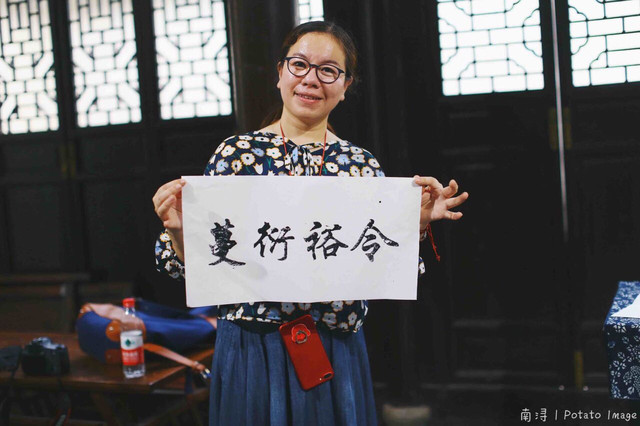 令裕衍蔓
南浔 | Potato Image